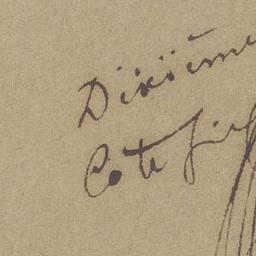 Dixième
Cote